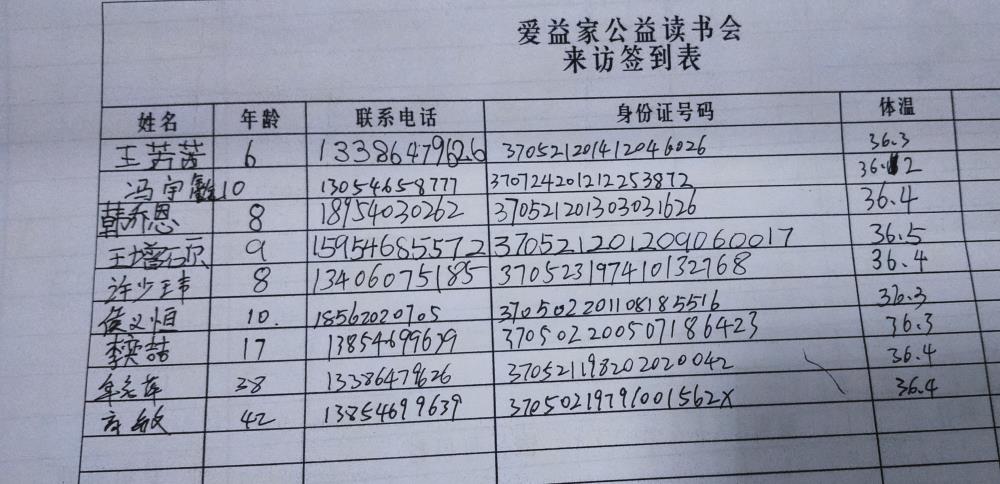 爱益家公益读书会
来访签到表
姓名 年龄 联系电话 身份证号码 体温
6 13386479626 370521201412046026 36.3
10 13054658777 370724201212253872 36.2
韩乔恩 8 18954030262 370521201303031626 36.4
9 15954685572 370521201209060017 36.5
许少玮 8 13406075185 370523197410132768 36.4
侯义恒 10. 18562020705 370502201108185516 36.3
李奕喆 17 13854699639 370502200507186423 36.3
38 13386479626 370521198202020042 36.4
高敏 42 13854699639 37050219791001562X 36.4